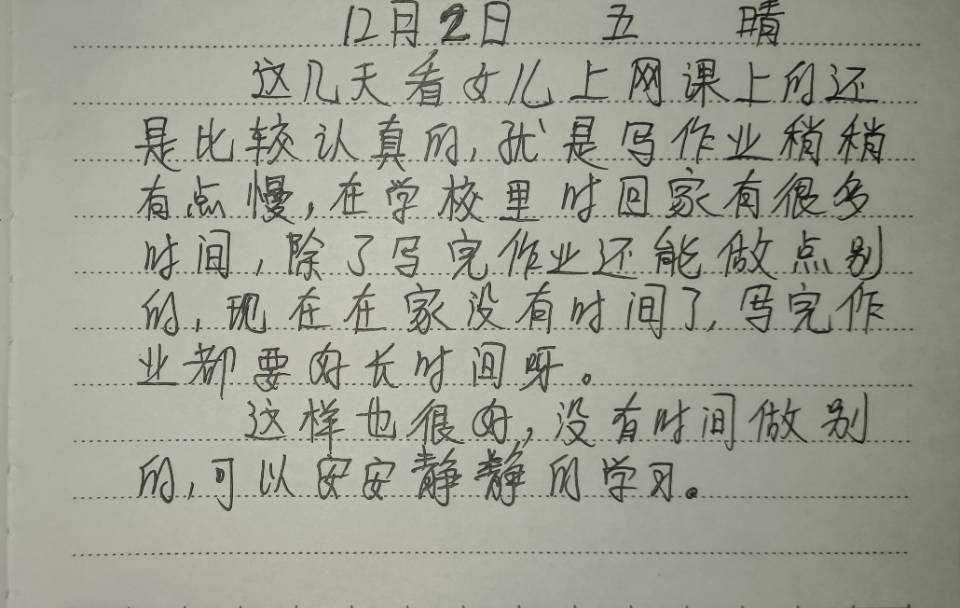 12月2日 五 晴
这几天看女儿上网课上的还
是比较认真的,就是写作业稍稍
有点慢,在学校里时回家有很多
时间,除了写完作业还能做点别
的,现在在家没有时间了,写完作
业都要好长时间呀。
这样也很好,没有时间做别
的,可以安安静静的学习。